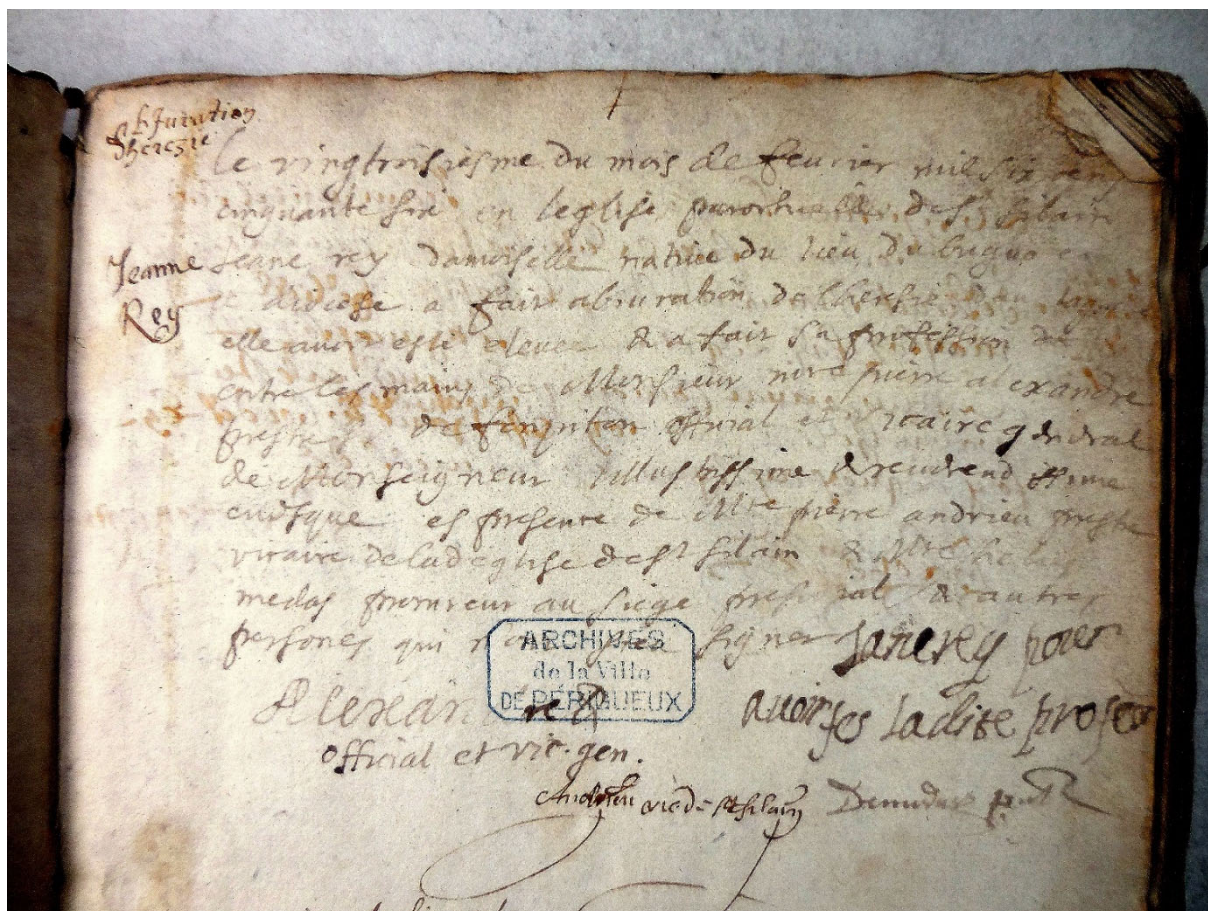 abjuration
d'heresie
Jeanne
Rey
Le vingtroisiesme du mois de feurier mil six cens
cinquante six en leglise paroichielle de st silain
Jeane rey damoiselle natiue du lieu du buguo
a fait abiuration de lheresie
elle auoit esté eleuee & a fait sa profession de
entre les mains de Monsieur pierre alexandre
prestre official et vicaire general
de Monseigneur Illustrissime & reuerendissime
euesque es presence de Mre pierre andrieu prestre
vicaire de lad eglise de st silain & Mre
medas procureur au siege presidial & autres
persones qui signer Jane rey pour
auoir fes ladite profes
Alexandre
official et vic. gen.
Andrieu vic de st silain
ARCHIVES
de la Ville
DE PÉRIGUEUX